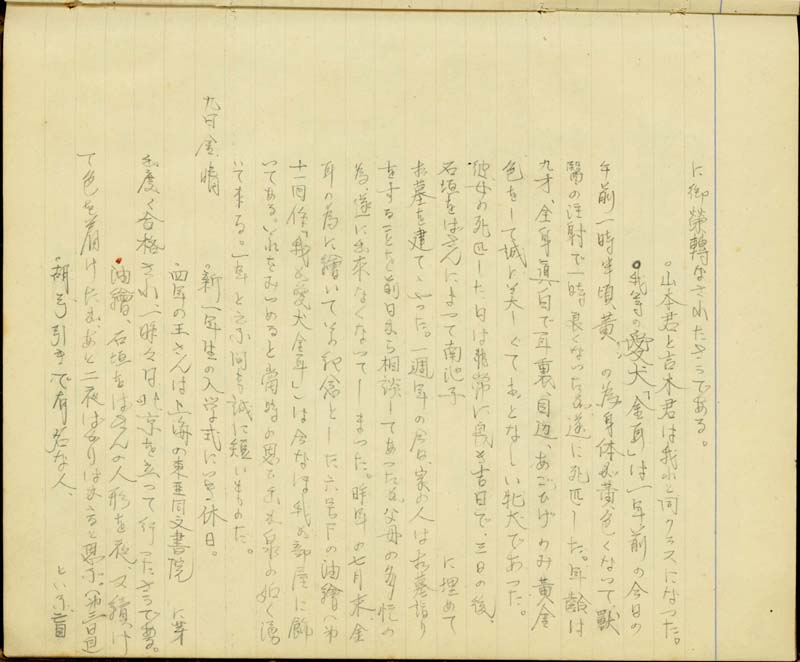 に御榮轉なされたさうである。
。山本君と吉木君は我れと同クラスになった。
。我等の愛犬「金耳」は一年前の今日の
午前一時半頃、黄の為身体が黄色くなって獸
醫の注射で一時良くなったが遂に死亡した。年齢は
九才、全身真白で耳裏、目辺、あごひげのみ黄金
色をして誠に美しくておとなしい牝犬であった。
死亡した日は非常に吉日で、三日の後、
石垣をばさんによって南池子 に埋めて
お墓を建てゝやった。一週年の今日家の人はお墓詣り
をすることを前日から相談してあったが父母の多忙の
為、遂に出来なくなってしまった。昨年の七月末、金
耳の為に繪いてその紀念とした六号Fの油繪(第
十一回作「我が愛犬金耳」)は今なほ我が部屋に飾
いてある。それをみつめると當時の思ひ出が泉の如く湧
いて来る。一年と云ふ間も誠に短いものだ。
九日 金 晴
。新一年生の入学式につき休日。
四年の王さんは上海の東亜同文書院 に芽
出度く合格され、一昨々日北京を立って行ったさうである。
。油繪、石垣をばさんの人形を夜、又續け
て色を着けたが、あと二夜ばかりはかゝると思ふ。(第三日目)
。胡弓引きで有名な人、 といふ盲